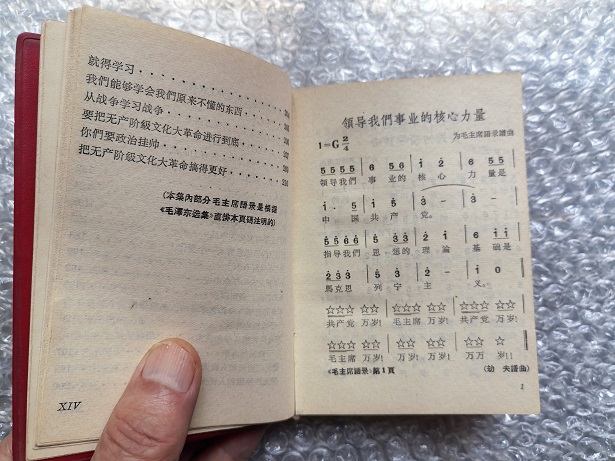 就得学习
我們能够学会我們原来不懂的东西
从战争学习战争
要把无产阶級文化大革命进行到底
你們要政治挂帅
把无产阶級文化大革命搞得更好
(本集內部分毛主席語录是根据
《毛澤东选集》直排本頁碼注明的)
XIV
領导我們事业的核心力量
1=G 2/4
为毛主席語录譜曲
5 5 5 5 | 6 5 6 | i 2 | 6 5 5 |
領导我們 事 业的 核 心 力 量是
i . 5 | i 5 | 3 - | 3 - |
中 国 共 产 党。
5 5 6 6 | 5 3 3 | 2 i | 6 i i |
指导我們 思 想的 理論 基础是
2 3 3 | 5 3 | 2 - | i 0
馬克思 列 宁 主 义。
☆☆☆ ☆☆ | ☆☆☆ ☆☆ | ☆☆☆ ☆☆
共产党 万岁! 毛主席 万岁! 共产党 万岁!
☆☆☆ ☆☆ | ☆☆ ☆☆ | ☆☆ ☆
毛主席 万岁! 万岁! 万岁! 万万 岁!!
《毛主席語录》第1頁
(劫 夫譜曲)
1